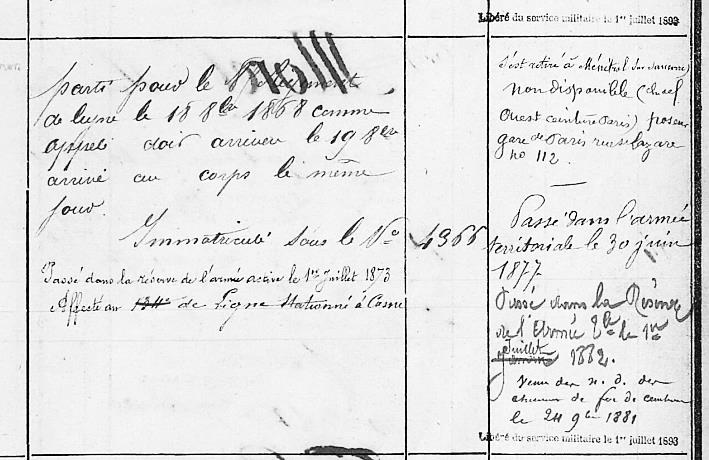 Libéré du service militaire le 1er juillet 1893
parti pour le Régiment
de ligne le 18 8bre 1868 comme
appelé doit arriver le 19 8bre
arrivé au corps le même
jour.
Immatriculé sous le No 4366
Passé dans la réserve de l'armée active le 1er Juillet 1873
Affecté au de Ligne stationné à Cosne
s'est retiré à Ménétréol sur Sancerre
non disponible (
Ouest ceinture Paris) poseur
gare de Paris rue St Lazare
no 112.
Passé dans l'armée
territoriale le 30 juin
1877
Passé dans la Réserve
de l'Armée Tle le 1er
Juillet 1882.
Venu des n. d. des
chemins de fer de ceinture
le 24 9bre 1881
Libéré du service militaire le 1er juillet 1893